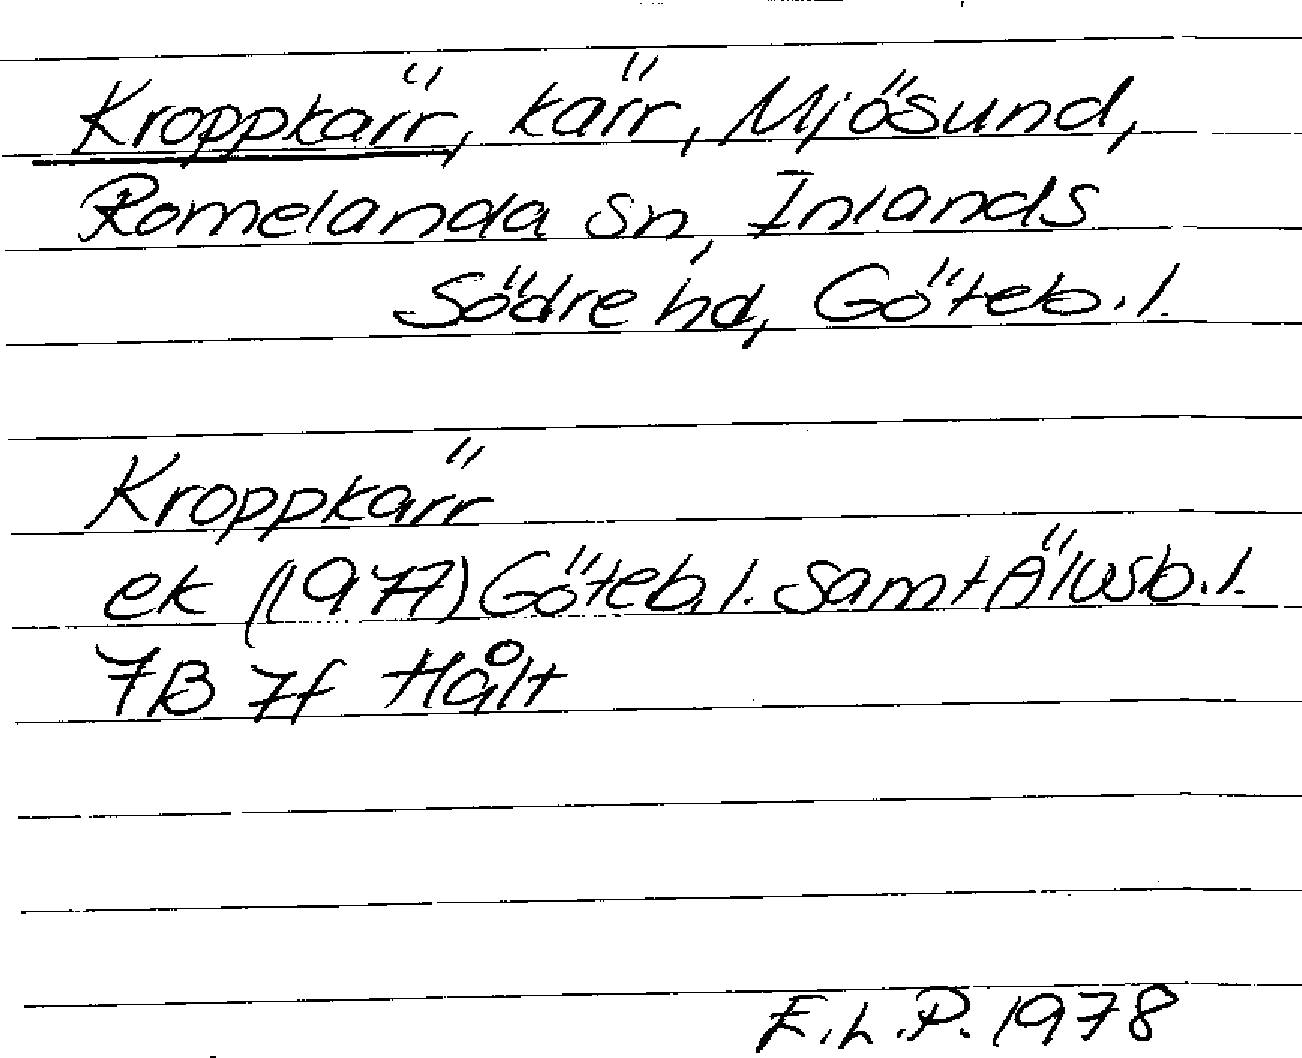 Kroppkärr, kärr, Mjösund,
Romelanda sn, Inlands
Södre hd, Göteb.l.
Kroppkärr
ek (1977) Göteb.l. samt Älvsb.l.
7B 7f Hålt
E.L.P. 1978